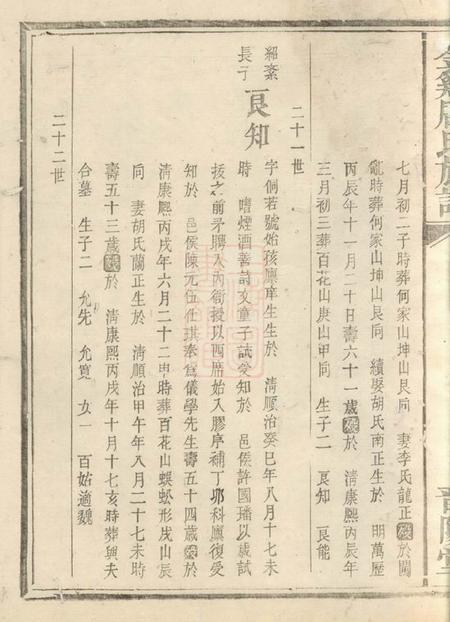 七月初二子時葬何家山坤山艮同 妻李氏龍正歿於闖
亂時葬何家山坤山艮同 續娶胡氏南正生於 明萬歷
丙辰年十一月二十日壽六十一歲歿於 清康熙丙辰年
三月初三葬百花山庚山甲同 生子二 良知 良能
二十一世
紹紊
長子 良知
字侗若號始孩廪庠生生於 清順治癸巳年八月十七未
時 嗜煙酒善詩文童子試受知於 邑侯許國璠以歲試
按之前矛購入內衙授以四席始入膠序補丁卯科廪復受
知於 邑侯陳元伍仕琪奉為儀學先生壽五十四歲歿於
清康熙丙戌年六月二十二申時葬百花山蜈蚣形戌山辰
同 妻胡氏蘭正生於 清順治甲午年八月二十七未時
壽五十三歲歿於 清康熙丙戌年十月十七亥時葬與夫
合墓 生子二 允先 允寬 女 百姑適魏
二十二世